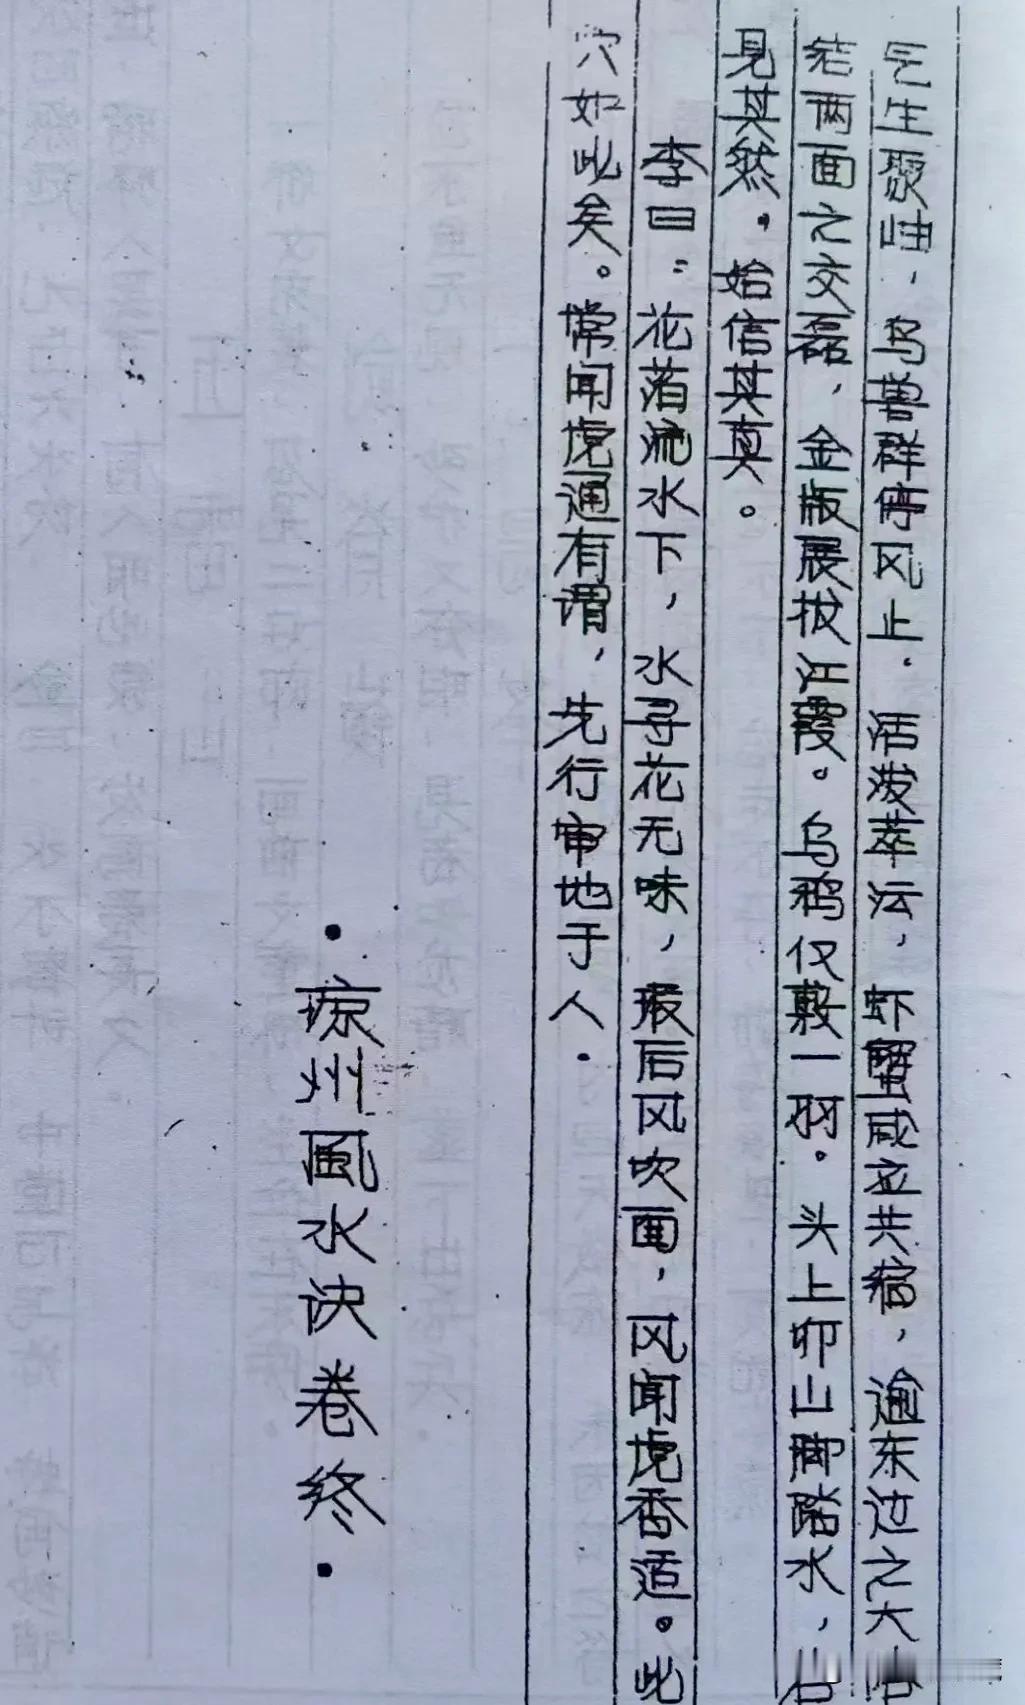 气生聚蛙，鸟兽群停风止．活泼萃沄，虾蟹咸立共宿，逾东过之大
结两面之交磊，金版展拔江霞。乌鸦仅敷一羽。头上卯山脚踏水，
见其然．始信其真。
李曰：花落流水下，水寻花无味，最后风吹面，风闻境香适。此
穴如此矣。常闻境通有谓，先行审地于人．
·琼州風水诀卷终·